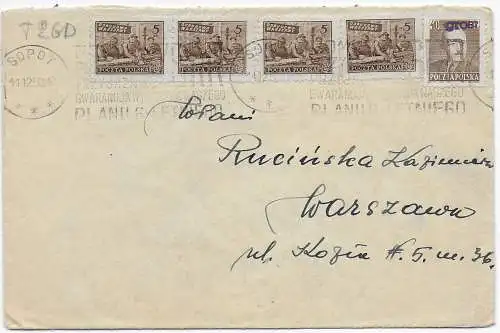 T 26D
5 5 5 5 40 GROSZY
POCZTA POLSKA POCZTA POLSKA POCZTA POLSKA POCZTA POLSKA POCZTA POLSKA
SOPOT
11.12.50
GWARANCJĄ GWARANCJĄ
PLANU 6 LETNIEGO PLANU 6 LETNIEGO
WPani
Rucińska Kazimiera
Warszawa
ul. Kozia N. 5. m. 36.